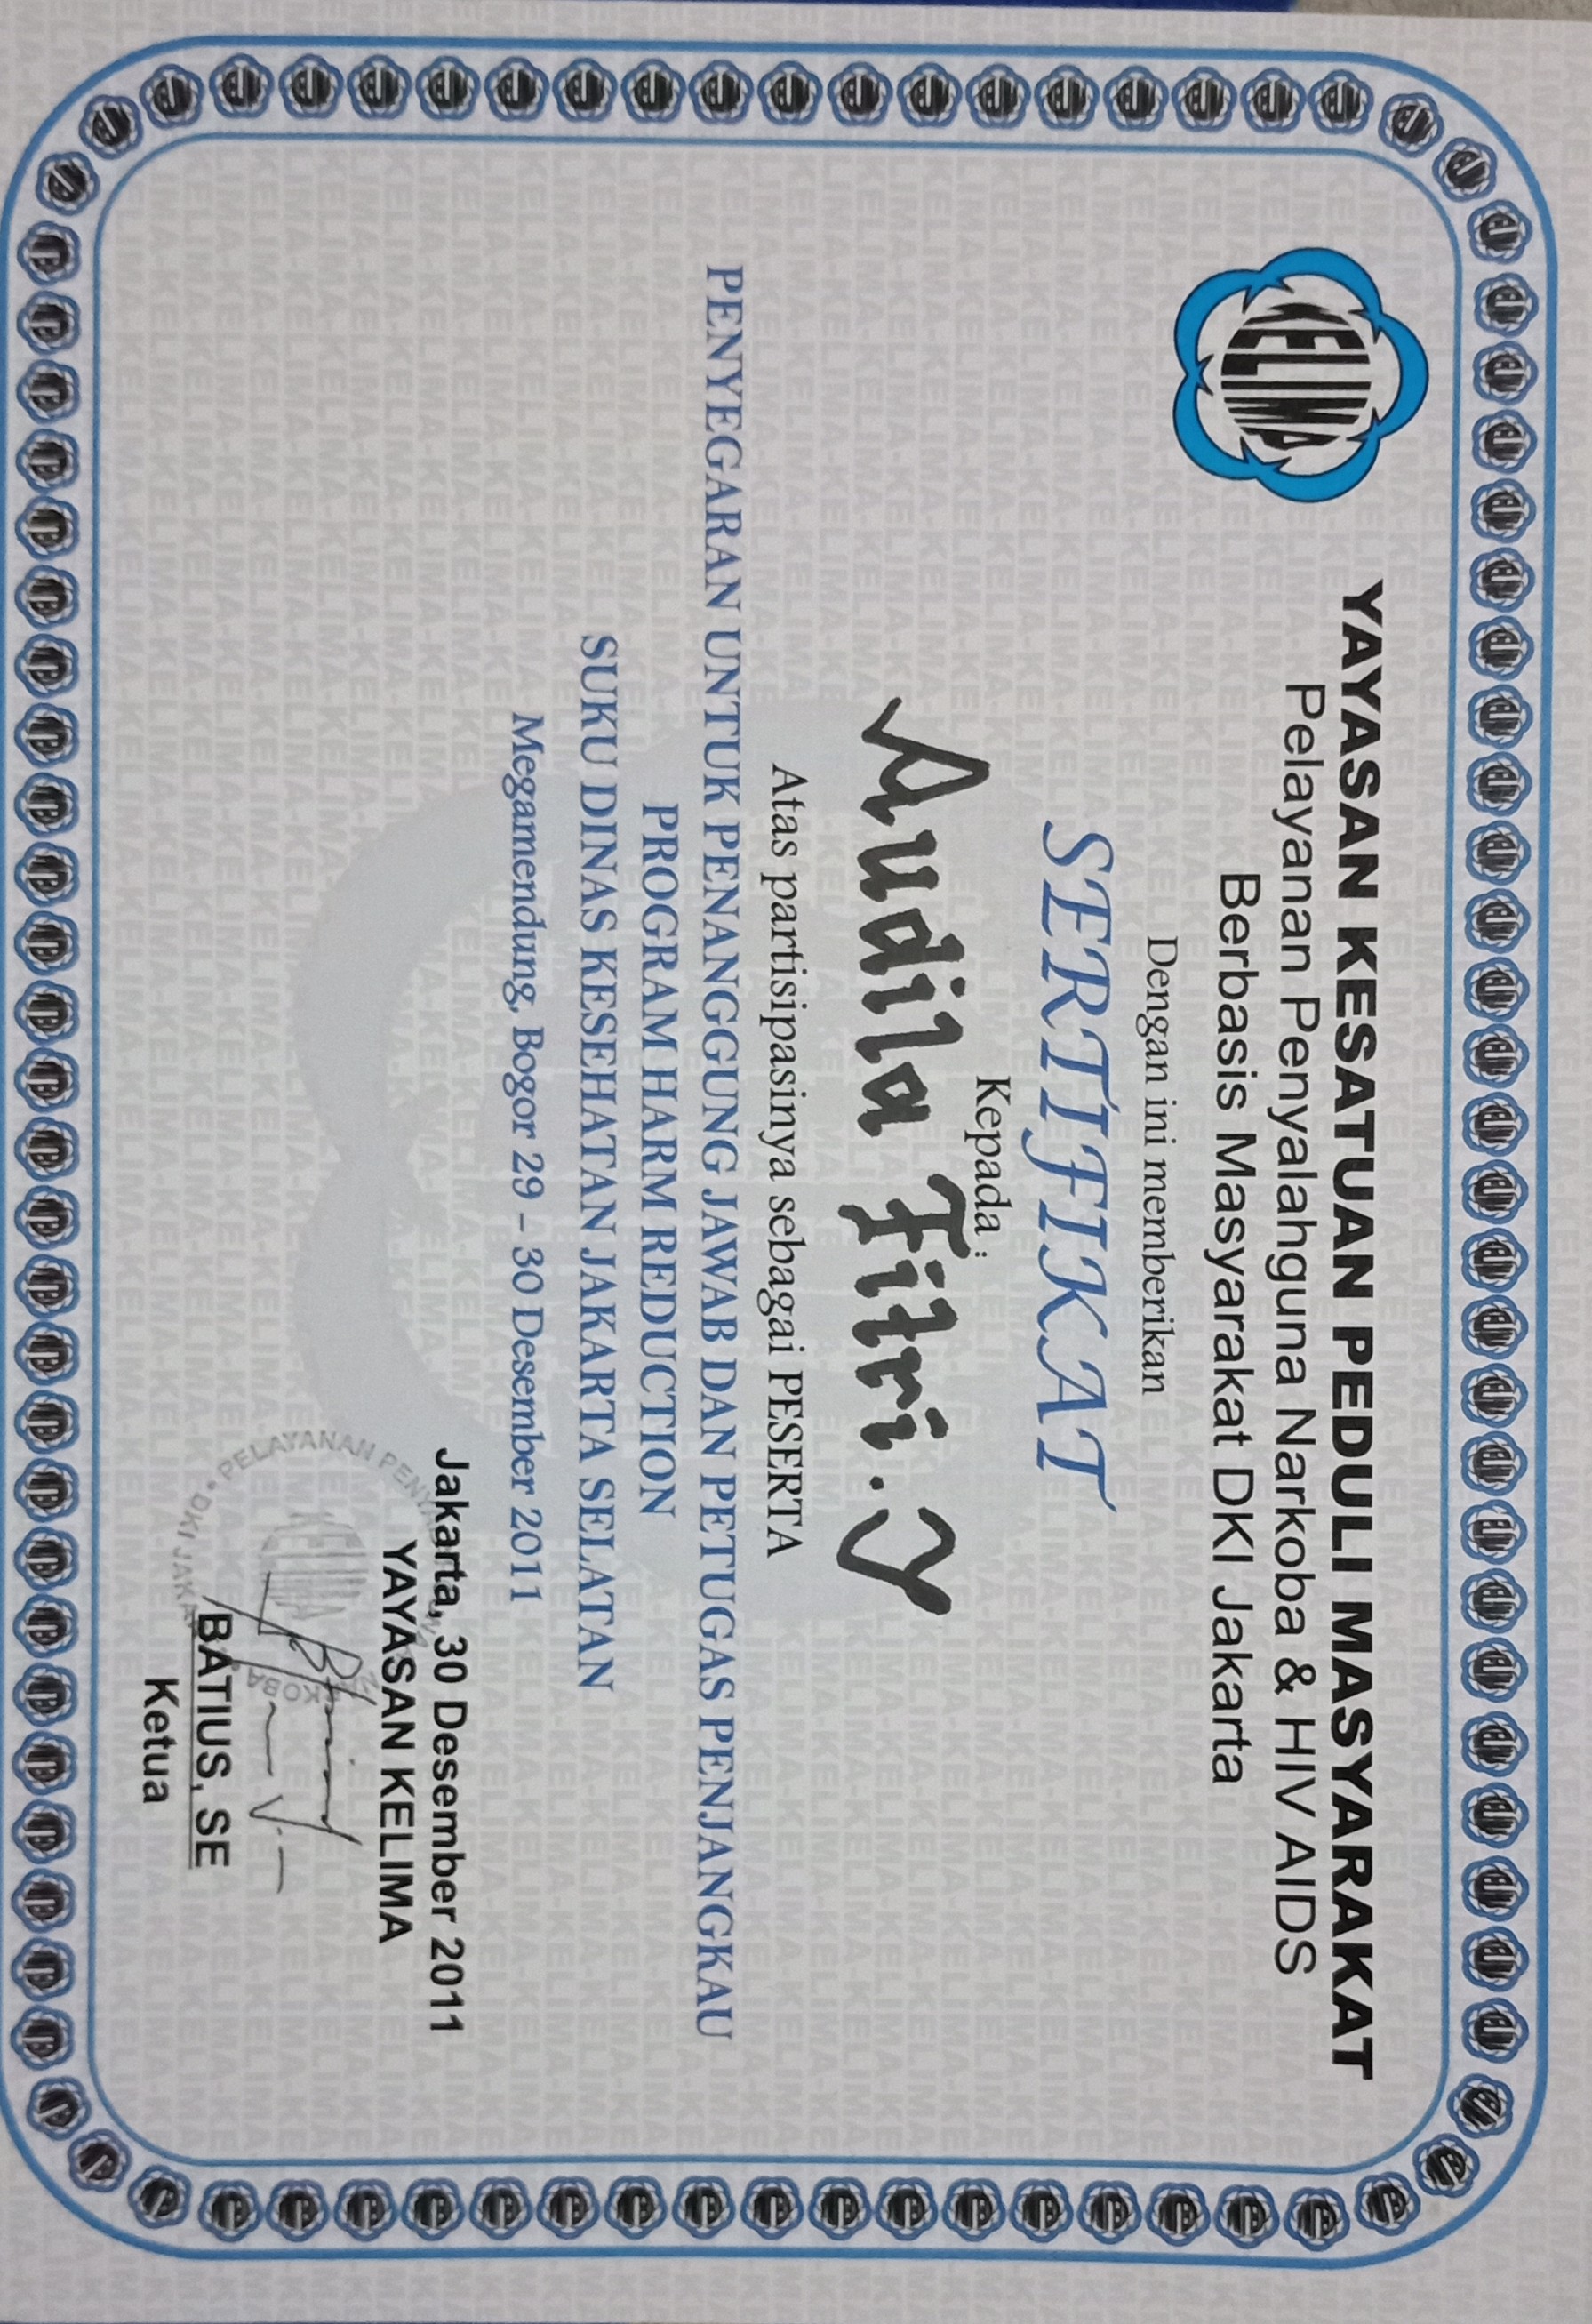 KELIMA
YAYASAN KESATUAN PEDULI MASYARAKAT
Pelayanan Penyalahguna Narkoba & HIV AIDS
Berbasis Masyarakat DKI Jakarta
Dengan ini memberikan
SERTIFIKAT
Kepada :
Audila Fitri. Y
Atas partisipasinya sebagai PESERTA
PENYEGARAN UNTUK PENANGGUNG JAWAB DAN PETUGAS PENJANGKAU
PROGRAM HARM REDUCTION
SUKU DINAS KESEHATAN JAKARTA SELATAN
Megamendung, Bogor 29 – 30 Desember 2011
Jakarta, 30 Desember 2011
YAYASAN KELIMA
BATIUS, SE
Ketua